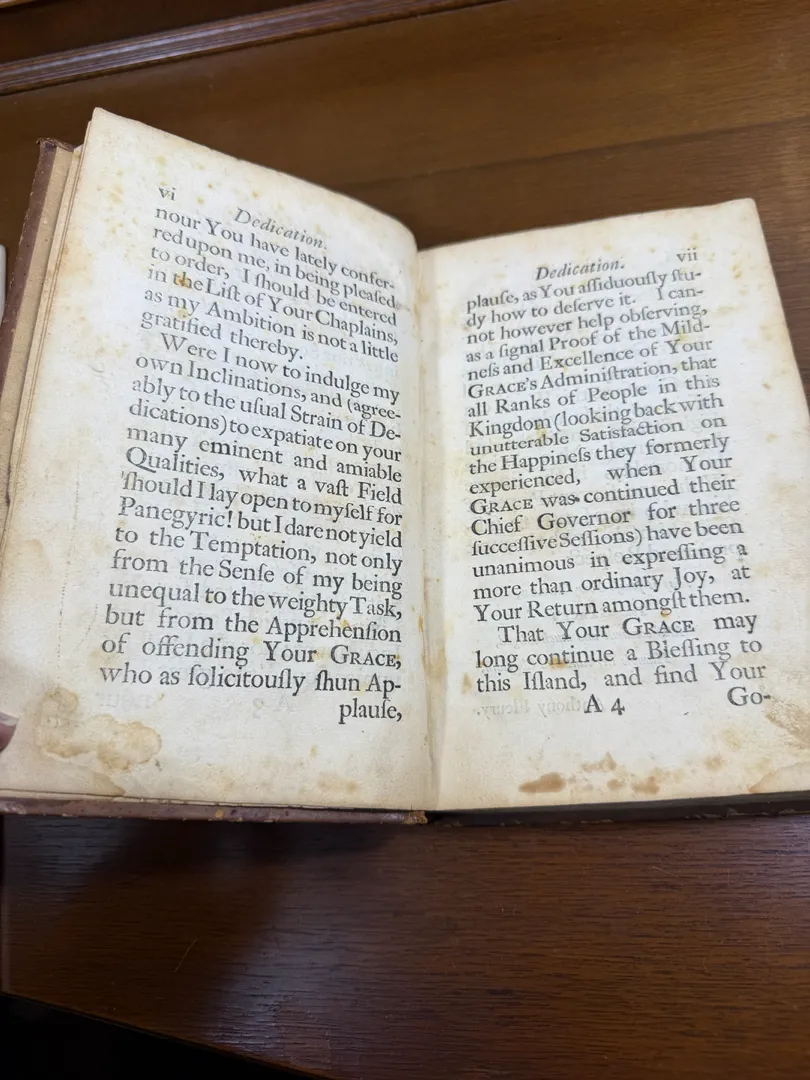 vi
Dedication.
nour You have lately confer-
red upon me, in being pleaſed
to order, I ſhould be entered
in the Liſt of Your Chaplains,
as my Ambition is not a little
gratified thereby.
Were I now to indulge my
own Inclinations, and (agree-
ably to the uſual Strain of De-
dications) to expatiate on your
many eminent and amiable
Qualities, what a vaſt Field
ſhould I lay open to myſelf for
Panegyric! but I dare not yield
to the Temptation, not only
from the Senſe of my being
unequal to the weighty Task,
but from the Apprehenſion
of offending Your GRACE,
who as ſolicitouſly ſhun Ap-
plauſe,
Dedication.
vii
plauſe, as You aſſiduouſly ſtu-
dy how to deſerve it. I can-
not however help obſerving,
as a ſignal Proof of the Mild-
neſs and Excellence of Your
GRACE's Adminiſtration, that
all Ranks of People in this
Kingdom (looking back with
unutterable Satisfaction on
the Happineſs they formerly
experienced, when Your
GRACE was continued their
Chief Governor for three
ſucceſſive Seſſions) have been
unanimous in expreſſing a
more than ordinary Joy, at
Your Return amongſt them.
That Your GRACE may
long continue a Bleſſing to
this Iſland, and find Your
A 4
Go-